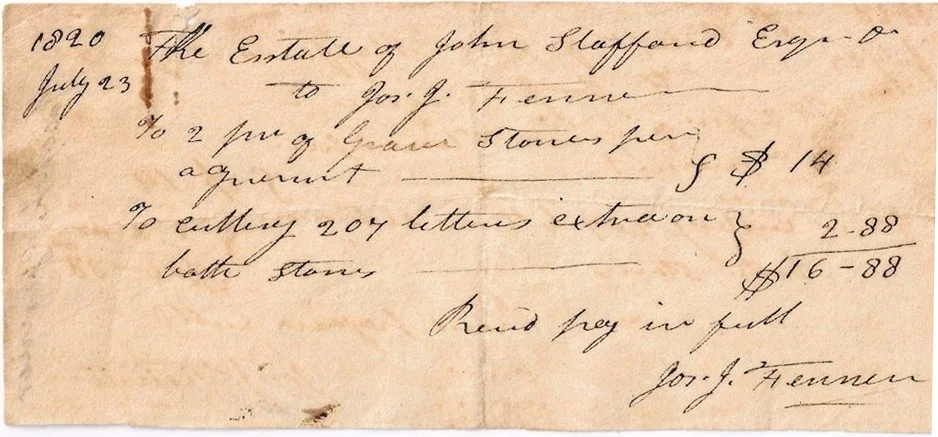 1820 The Estate of John Stafford Esqr Dr
July 23 to Jos. J. Fenner
To 2 pr of Grave Stones per
agrement $ 14
To cutting 207 letters extra on 2-88
both stones $16-88
Recd pay in full
Jos. J. Fenner